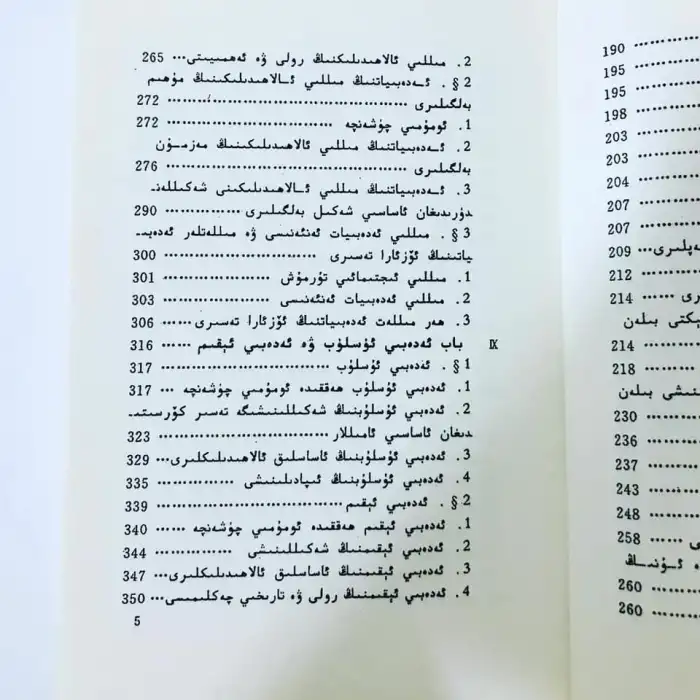 2. مىللىي ئالاھىدىلىكنىڭ رولى ۋە ئەھمىيىتى… 265
2 § . ئەدەبىياتنىڭ مىللىي ئالاھىدىلىكىنىڭ مۇھىم
بەلگىلىرى ……………………………… 272
1. ئومۇمىي چۈشەنچە ……………………… 272
2. ئەدەبىياتنىڭ مىللىي ئالاھىدىلىكىنىڭ مەزمۇن
بەلگىلىرى ……………………………… 276
3. ئەدەبىياتنىڭ مىللىي ئالاھىدىلىكىنى شەكىللەنـ
دۈرىدىغان ئاساسىي شەكىل بەلگىلىرى …………… 290
3 § . مىللىي ئەدەبىيات ئەنئەنىسى ۋە مىللەتلەر ئەدەبىـ
ياتىنىڭ ئۆزئارا تەسىرى ……………………… 300
1. مىللىي ئىجتىمائىي تۇرمۇش ……………… 301
2. مىللىي ئەدەبىيات ئەنئەنىسى ……………… 303
3. ھەر مىللەت ئەدەبىياتىنىڭ ئۆزئارا تەسىرى …… 306
IX باب ئەدەبىي ئۇسلۇب ۋە ئەدەبىي ئېقىم …… 316
1 § . ئەدەبىي ئۇسلۇب ……………………… 317
1. ئەدەبىي ئۇسلۇب ھەققىدە ئومۇمىي چۈشەنچە … 317
2. ئەدەبىي ئۇسلۇبنىڭ شەكىللىنىشىگە تەسىر كۆرسىتىـ
دىغان ئاساسىي ئامىللار ……………………… 323
3. ئەدەبىي ئۇسلۇبنىڭ ئاساسلىق ئالاھىدىلىكلىرى… 329
4. ئەدەبىي ئۇسلۇبنىڭ ئىپادىلىنىشى ………… 335
2 § . ئەدەبىي ئېقىم …………………… 339
1. ئەدەبىي ئېقىم ھەققىدە ئومۇمىي چۈشەنچە …… 340
2. ئەدەبىي ئېقىمنىڭ شەكىللىنىشى ………… 344
3. ئەدەبىي ئېقىمنىڭ ئاساسلىق ئالاھىدىلىكلىرى… 347
4. ئەدەبىي ئېقىمنىڭ رولى ۋە تارىخىي چەكلىمىسى… 350
5
190 …………
195 …………
195 …………
198 …………
203 …………
203 …………
204 …………
207 …………
207 …………
209 …
212 …………
214 ……
بىلەن
214 …………
218 …………
بىلەن
230 …………
236 …………
237 …………
243 …………
248 …………
258 …………
260 …………
260 …………